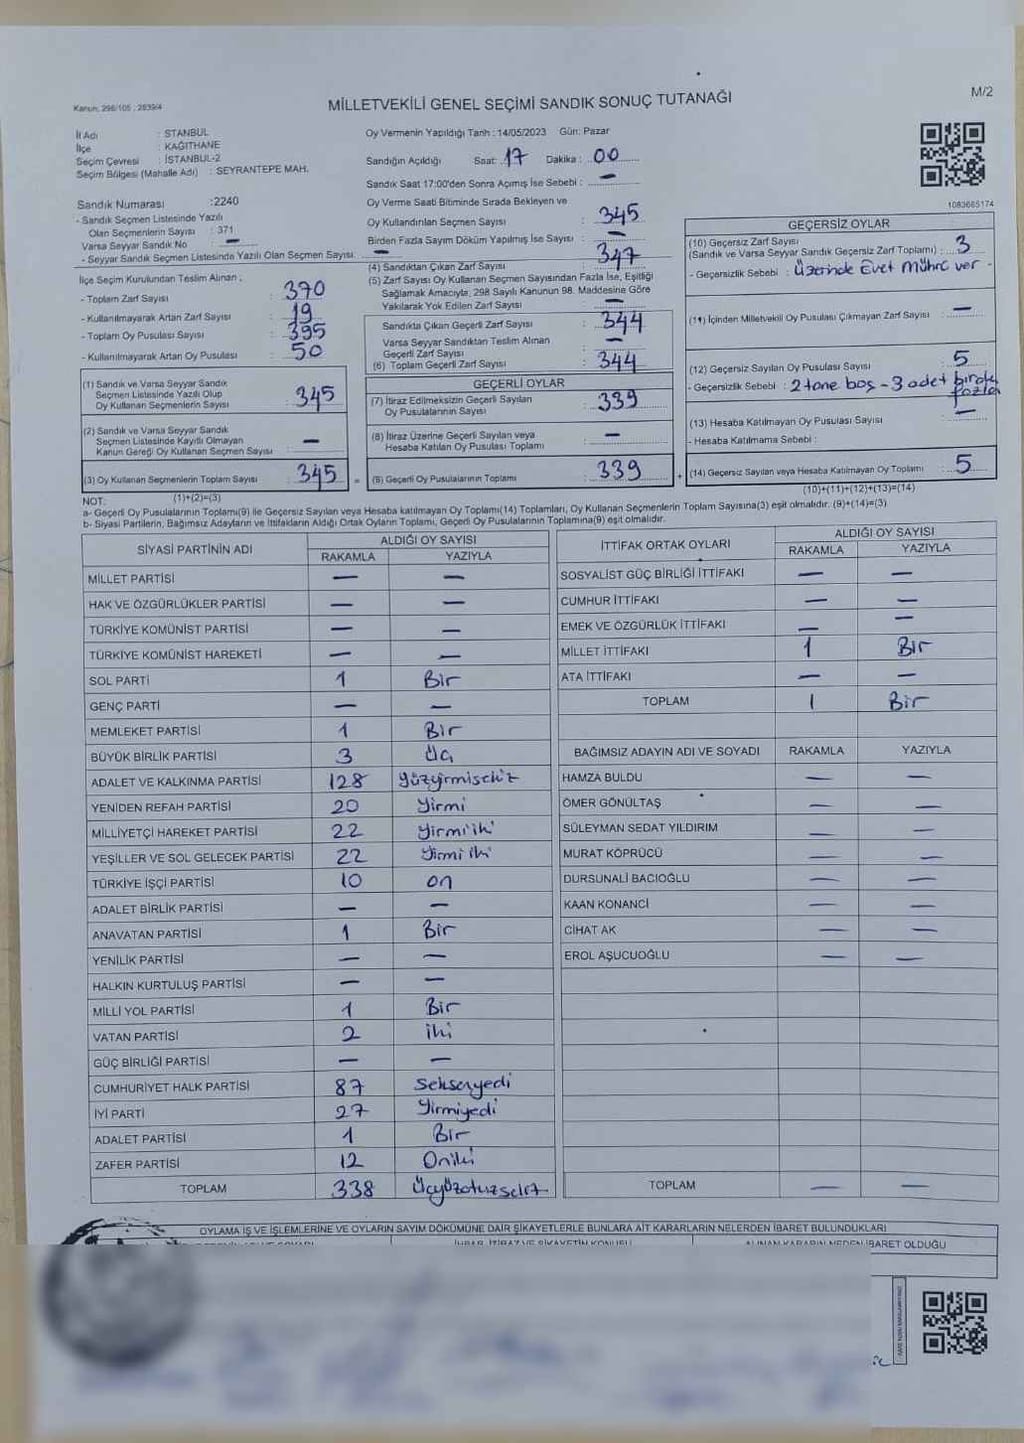 Kanun: 298/105 ; 2839/4
MİLLETVEKİLİ GENEL SEÇİMİ SANDIK SONUÇ TUTANAĞI
M/2
İl Adı : STANBUL
İlçe : KAĞITHANE
Seçim Çevresi : İSTANBUL-2
Seçim Bölgesi (Mahalle Adı) : SEYRANTEPE MAH.
Oy Vermenin Yapıldığı Tarih : 14/05/2023 Gün: Pazar
Sandığın Açıldığı Saat: 17 Dakika : 00
Sandık Saat 17:00'den Sonra Açımış İse Sebebi : —
Sandık Numarası :2240
- Sandık Seçmen Listesinde Yazılı
Olan Seçmenlerin Sayısı : 371
Varsa Seyyar Sandık No —
- Seyyar Sandık Seçmen Listesinde Yazılı Olan Seçmen Sayısı: —
İlçe Seçim Kurulundan Teslim Alınan ;
- Toplam Zarf Sayısı : 370
- Kullanılmayarak Artan Zarf Sayısı : 19
- Toplam Oy Pusulası Sayısı : 395
- Kullanılmayarak Artan Oy Pusulası : 50
(1) Sandık ve Varsa Seyyar Sandık
Seçmen Listesinde Yazılı Olup
Oy Kullanan Seçmenlerin Sayısı : 345
(2) Sandık ve Varsa Seyyar Sandık
Seçmen Listesinde Kayıtlı Olmayan
Kanun Gereği Oy Kullanan Seçmen Sayısı —
(3) Oy Kullanan Seçmenlerin Toplam Sayısı : 345
(1)+(2)=(3)
Oy Verme Saati Bitiminde Sırada Bekleyen ve
Oy Kullandırılan Seçmen Sayısı : 345
Birden Fazla Sayım Döküm Yapılmış İse Sayısı : —
(4) Sandıktan Çıkan Zarf Sayısı : 347
(5) Zarf Sayısı Oy Kullanan Seçmen Sayısından Fazla İse, Eşitliği
Sağlamak Amacıyla, 298 Sayılı Kanunun 98. Maddesine Göre
Yakılarak Yok Edilen Zarf Sayısı —
Sandıkta Çıkan Geçerli Zarf Sayısı : 344
Varsa Seyyar Sandıktan Teslim Alınan
Geçerli Zarf Sayısı —
(6) Toplam Geçerli Zarf Sayısı : 344
GEÇERLİ OYLAR
(7) İtiraz Edilmeksizin Geçerli Sayılan
Oy Pusulalarının Sayısı : 339
(8) İtiraz Üzerine Geçerli Sayılan veya
Hesaba Katılan Oy Pusulası Toplamı : —
(9) Geçerli Oy Pusulalarının Toplamı : 339
1083685174
GEÇERSİZ OYLAR
(10) Geçersiz Zarf Sayısı
(Sandık ve Varsa Seyyar Sandık Geçersiz Zarf Toplamı) : 3
- Geçersizlik Sebebi : Üzerinde Evet mührü var -
(11) İçinden Milletvekili Oy Pusulası Çıkmayan Zarf Sayısı : —
(12) Geçersiz Sayılan Oy Pusulası Sayısı : 5
- Geçersizlik Sebebi : 2 tane boş - 3 adet birden fazla
(13) Hesaba Katılmayan Oy Pusulası Sayısı : —
- Hesaba Katılmama Sebebi :
(14) Geçersiz Sayılan veya Hesaba Katılmayan Oy Toplamı : 5
(10)+(11)+(12)+(13)=(14)
NOT:
a- Geçerli Oy Pusulalarının Toplamı(9) ile Geçersiz Sayılan veya Hesaba katılmayan Oy Toplamı(14) Toplamları, Oy Kullanan Seçmenlerin Toplam Sayısına(3) eşit olmalıdır. (9)+(14)=(3)
b- Siyasi Partilerin, Bağımsız Adayların ve İttifakların Aldığı Ortak Oyların Toplamı, Geçerli Oy Pusulalarının Toplamına(9) eşit olmalıdır.
SİYASİ PARTİNİN ADI ALDIĞI OY SAYISI
RAKAMLA YAZIYLA
MİLLET PARTİSİ — —
HAK VE ÖZGÜRLÜKLER PARTİSİ — —
TÜRKİYE KOMÜNİST PARTİSİ — —
TÜRKİYE KOMÜNİST HAREKETİ — —
SOL PARTİ 1 Bir
GENÇ PARTİ — —
MEMLEKET PARTİSİ 1 Bir
BÜYÜK BİRLİK PARTİSİ 3 Üç
ADALET VE KALKINMA PARTİSİ 128 Yüzyirmisekiz
YENİDEN REFAH PARTİSİ 20 Yirmi
MİLLİYETÇİ HAREKET PARTİSİ 22 Yirmi iki
YEŞİLLER VE SOL GELECEK PARTİSİ 22 Yirmi iki
TÜRKİYE İŞÇİ PARTİSİ 10 on
ADALET BİRLİK PARTİSİ — —
ANAVATAN PARTİSİ 1 Bir
YENİLİK PARTİSİ — —
HALKIN KURTULUŞ PARTİSİ — —
MİLLİ YOL PARTİSİ 1 Bir
VATAN PARTİSİ 2 iki
GÜÇ BİRLİĞİ PARTİSİ — —
CUMHURİYET HALK PARTİSİ 87 Seksenyedi
İYİ PARTİ 27 Yirmiyedi
ADALET PARTİSİ 1 Bir
ZAFER PARTİSİ 12 Oniki
TOPLAM 338 Üçyüzotuzsekiz
İTTİFAK ORTAK OYLARI ALDIĞI OY SAYISI
RAKAMLA YAZIYLA
SOSYALİST GÜÇ BİRLİĞİ İTTİFAKI — —
CUMHUR İTTİFAKI — —
EMEK VE ÖZGÜRLÜK İTTİFAKI — —
MİLLET İTTİFAKI 1 Bir
ATA İTTİFAKI — —
TOPLAM 1 Bir
BAĞIMSIZ ADAYIN ADI VE SOYADI RAKAMLA YAZIYLA
HAMZA BULDU — —
ÖMER GÖNÜLTAŞ — —
SÜLEYMAN SEDAT YILDIRIM — —
MURAT KÖPRÜCÜ — —
DURSUNALİ BACIOĞLU — —
KAAN KONANCİ — —
CİHAT AK — —
EROL AŞUCUOĞLU — —
TOPLAM — —
OYLAMA İŞ VE İŞLEMLERİNE VE OYLARIN SAYIM DÖKÜMÜNE DAİR ŞİKAYETLERLE BUNLARA AİT KARARLARIN NELERDEN İBARET BULUNDUKLARI
İHBAR, İTİRAZ VE ŞİKAYETİN KONUSU ALINAN KARARIN NEDEN İBARET OLDUĞU